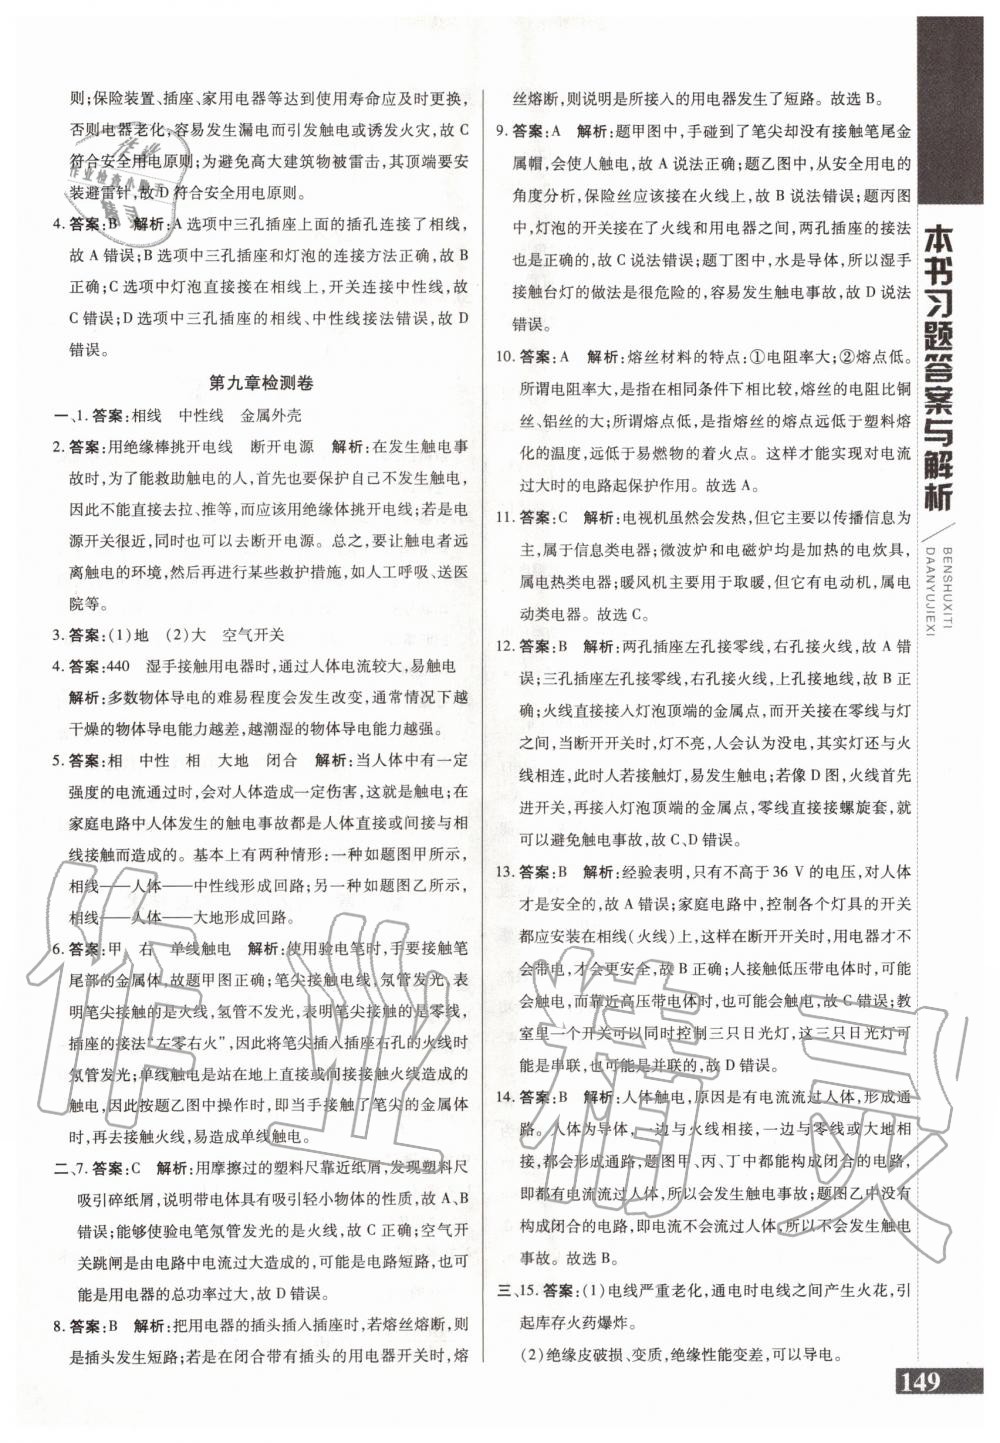 则;保险装置、插座、家用电器等达到使用寿命应及时更换,
否则电器老化,容易发生漏电而引起触电或诱发火灾,故 C
符合安全用电原则;为避免高大建筑物被雷击,其顶端要安
装避雷针,故 D 符合安全用电原则。
4. 答案:B 解析:A 选项中三孔插座上面的插孔连接了相线,
故 A 错误;B 选项中三孔插座和灯泡的连接方法正确,故 B
正确;C 选项中灯泡直接接在相线上,开关连接中性线,故
C 错误;D 选项中三孔插座的相线、中性线接法错误,故 D
错误。
第九章检测卷
一、1. 答案:相线 中性线 金属外壳
2. 答案:用绝缘棒挑开电线 断开电源 解析:在发生触电事
故时,为了能救助触电的人,首先也要保护自己不能触电,
因此不能直接去拉、推等,而应该用绝缘体挑开电线;若是电
源开关很近,同时也可以去断开电源。总之,要让触电者远
离触电的环境,然后再进行某些救护措施,如人工呼吸、送医
院等。
3. 答案:(1)地 (2)大 空气开关
4. 答案:440 湿手接触用电器时,通过人体电流较大,易触电
解析:多数物体导电的难易程度会发生改变,通常情况下越
干燥的物体导电能力越差,越潮湿的物体导电能力越强。
5. 答案:相 中性 相 大地 闭合 解析:当人体中有一定
强度的电流通过时,会对人体造成一定伤害,这就是触电;在
家庭电路中人体发生的触电事故都是人体直接或间接与相
线接触而造成的。基本上有两种情形:一种如题图甲所示,
相线——人体——中性线形成回路;另一种如题图乙所示,
相线——人体——大地形成回路。
6. 答案:甲 右 单线触电 解析:使用验电笔时,手要接触笔
尾部的金属体,故题甲图正确;笔尖接触电线,氖管发光,表
明笔尖接触的是火线,氖管不发光,表明笔尖接触的是零线,
插座的接法“左零右火”,因此将笔尖插入插座右孔的火线时
氖管发光;单线触电是站在地上直接或间接接触火线造成的
触电,因此按题乙图中操作时,即当手接触了笔尖的金属体
时,再去接触火线,易造成单线触电。
二、7. 答案:C 解析:用摩擦过的塑料尺靠近纸屑,发现塑料尺
吸引碎纸屑,说明带电体具有吸引轻小物体的性质,故 A、B
错误;能够使验电笔氖管发光的是火线,故 C 正确;空气开
关跳闸是由电路中电流过大造成的,可能是电路短路,也可
能是用电器的总功率过大,故 D 错误。
8. 答案:B 解析:把用电器的插头插入插座时,若熔丝熔断,则
是插头发生短路;若是在闭合带有插头的用电器开关时,熔
丝熔断,则说明是所接入的用电器发生了短路。故选 B。
9. 答案:A 解析:题甲图中,手碰到了笔尖却没有接触笔尾金
属帽,会使人触电,故 A 说法正确;题乙图中,从安全用电的
角度分析,保险丝应该接在火线上,故 B 说法错误;题丙图
中,灯泡的开关接在了火线和用电器之间,两孔插座的接法
也是正确的,故 C 说法错误;题丁图中,水是导体,所以湿手
接触台灯的做法是很危险的,容易发生触电事故,故 D 说法
错误。
10. 答案:A 解析:熔丝材料的特点:①电阻率大;②熔点低。
所谓电阻率大,是指在相同条件下相比较,熔丝的电阻比铜
丝、铝丝的大;所谓熔点低,是指熔丝的熔点远低于塑料熔
化的温度,远低于易燃物的着火点。这样才能实现对电流
过大时的电路起保护作用。故选 A。
11. 答案:C 解析:电视机虽然会发热,但它主要以传播信息为
主,属于信息类电器;微波炉和电磁炉均是加热的电炊具,
属电热类电器;暖风机主要用于供暖,但它有电动机,属电
动类电器。故选 C。
12. 答案:B 解析:两孔插座左孔接零线,右孔接火线,故 A 错
误;三孔插座左孔接零线,右孔接火线,上孔接地线,故 B 正
确;火线直接接入灯泡顶端的金属点,而开关接在零线与灯
之间,当断开开关时,灯不亮,人会以为没电,其实灯还与火
线相连,此时人若接触灯,易发生触电;若像 D 图,火线首先
进开关,再接入灯泡顶端的金属点,零线直接接螺旋套,就
可以避免触电事故,故 C、D 错误。
13. 答案:B 解析:经验表明,只有不高于 36 V 的电压,对人体
才是安全的,故 A 错误;家庭电路中,控制各个灯具的开关
都应安装在相线(火线)上,这样在断开开关时,用电器才不
会带电,才会更安全,故 B 正确;人接触低压带电体时,可能
会触电,而靠近高压带电体时,也可能会触电,故 C 错误;教
室里一个开关可以同时控制三只日光灯,这三只日光灯可
能是串联,也可能是并联,故 D 错误。
14. 答案:B 解析:人体触电,原因是有电流流过人体,形成通
路。人体为导体,一边与火线相接,一边与零线或大地相
接,会形成通路,题图甲、丙、丁中是能形成闭合的电路,
即都有电流流过人体,所以会发生触电事故;题图乙中没有
构成闭合的电路,即电流不会流过人体,所以没有发生触电
事故。故选 B。
三、15. 答案:(1)电线严重老化,通电时电线之间产生火花,引
起库存火药爆炸。
(2)绝缘皮破损、变质,绝缘性能变差,可以导电。
本书习题答案与解析
BENSHUXITI
DAANYUJIEXI
149
作业精灵
作业
作业检查小助手
精灵